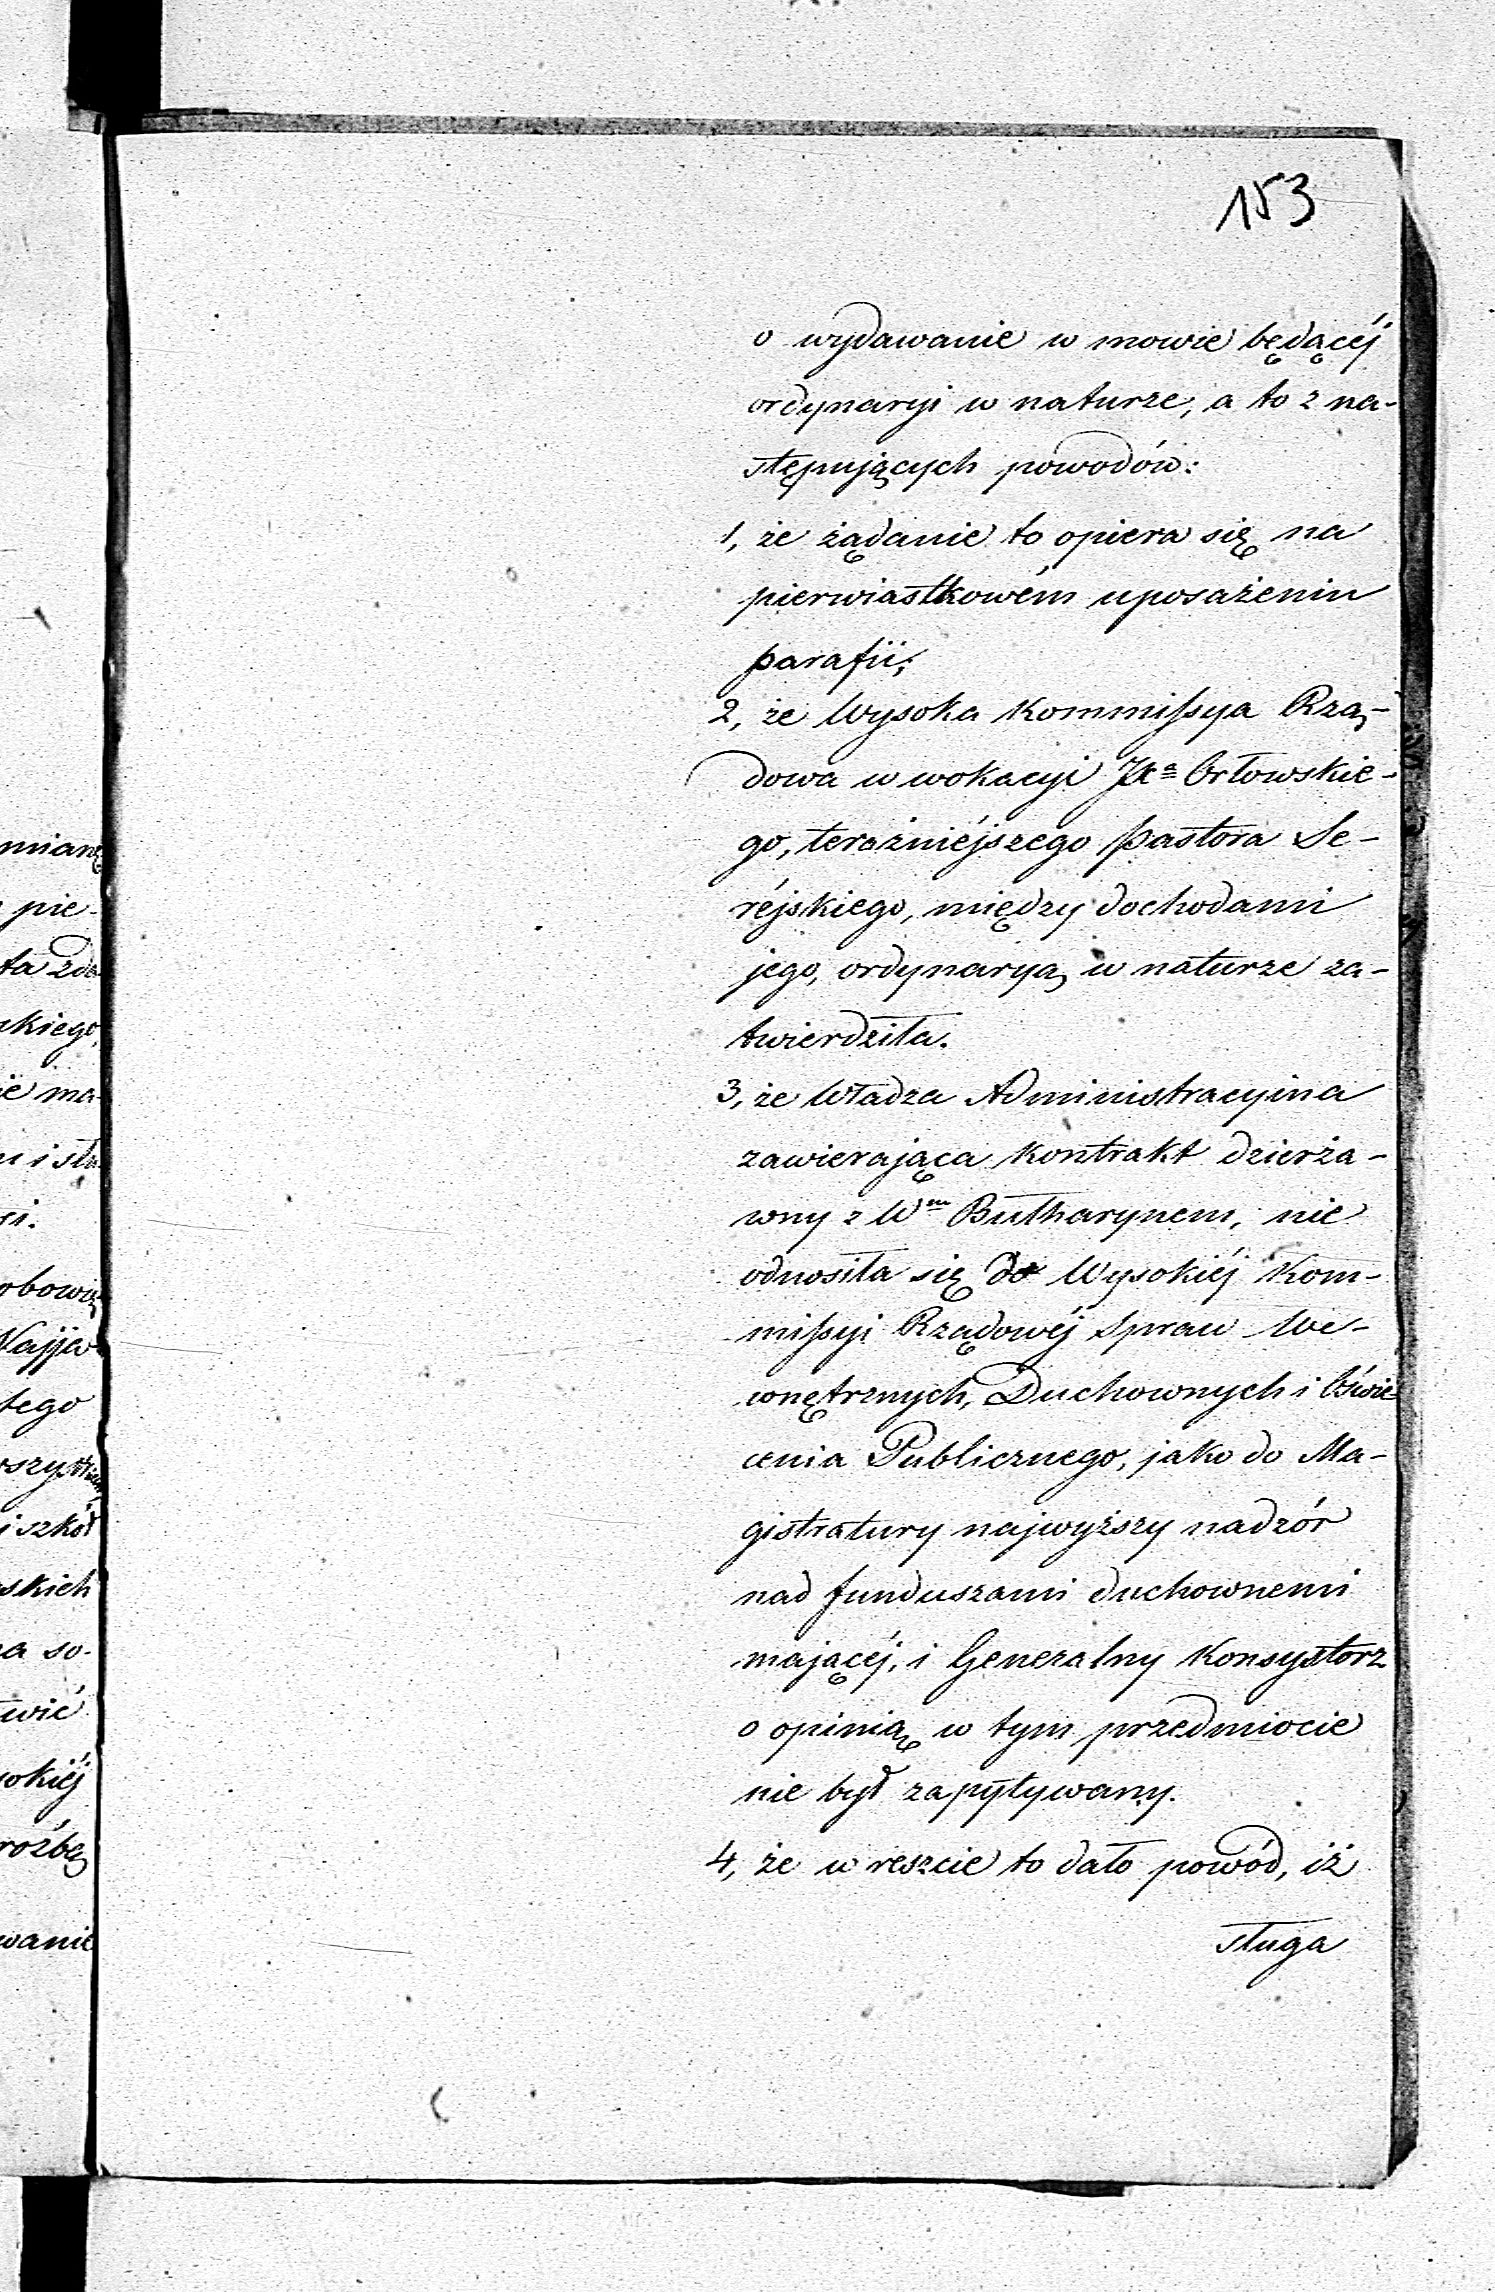 153
o wydawanie w mowie będącéj
ordynaryi w naturze, a to z na-
stępujących powodów:
1, że żądanie to opiera się na
pierwiastkowém uposażeniu
parafii;
2, że Wysoka Kommissya Rzą-
dowa w wokacyi Orłowskie-
go, teraźniéjszego Pastora Se-
réjskiego, między dochodami
jego, ordynaryą w naturze za-
twierdziła.
3, że Władza Administracyina
zawierająca Kontrakt dzierża-
wny z Wm Butharynem, nie
odnosiła się do Wysokiéj Kom-
missyi Rządowéj Spraw We-
wnętrznych, Duchownych i Oświe
cenia Publicznego, jako do Ma-
gistratury najwyższy nadzór
nad funduszami duchownemi
mającéj, i Generalny Konsystorz
o opinią w tym przedmiocie
nie był zapytywany.
4, że w reszcie to dało powód, iż
sługa
mianę
pie-
ta zda
skiego,
ie ma-
i słu
obową
Najja
tego
i szkół
skich
a so-
wić
sokiéj
roźbą
wanie